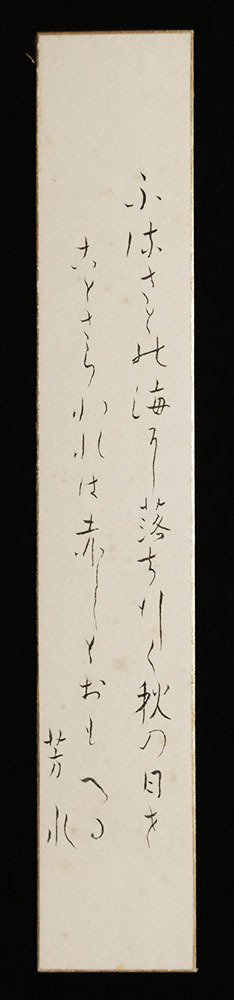 ふるさとの海に落ち行く秋の日を
ことさらわれは赤しとおもへる
芳水